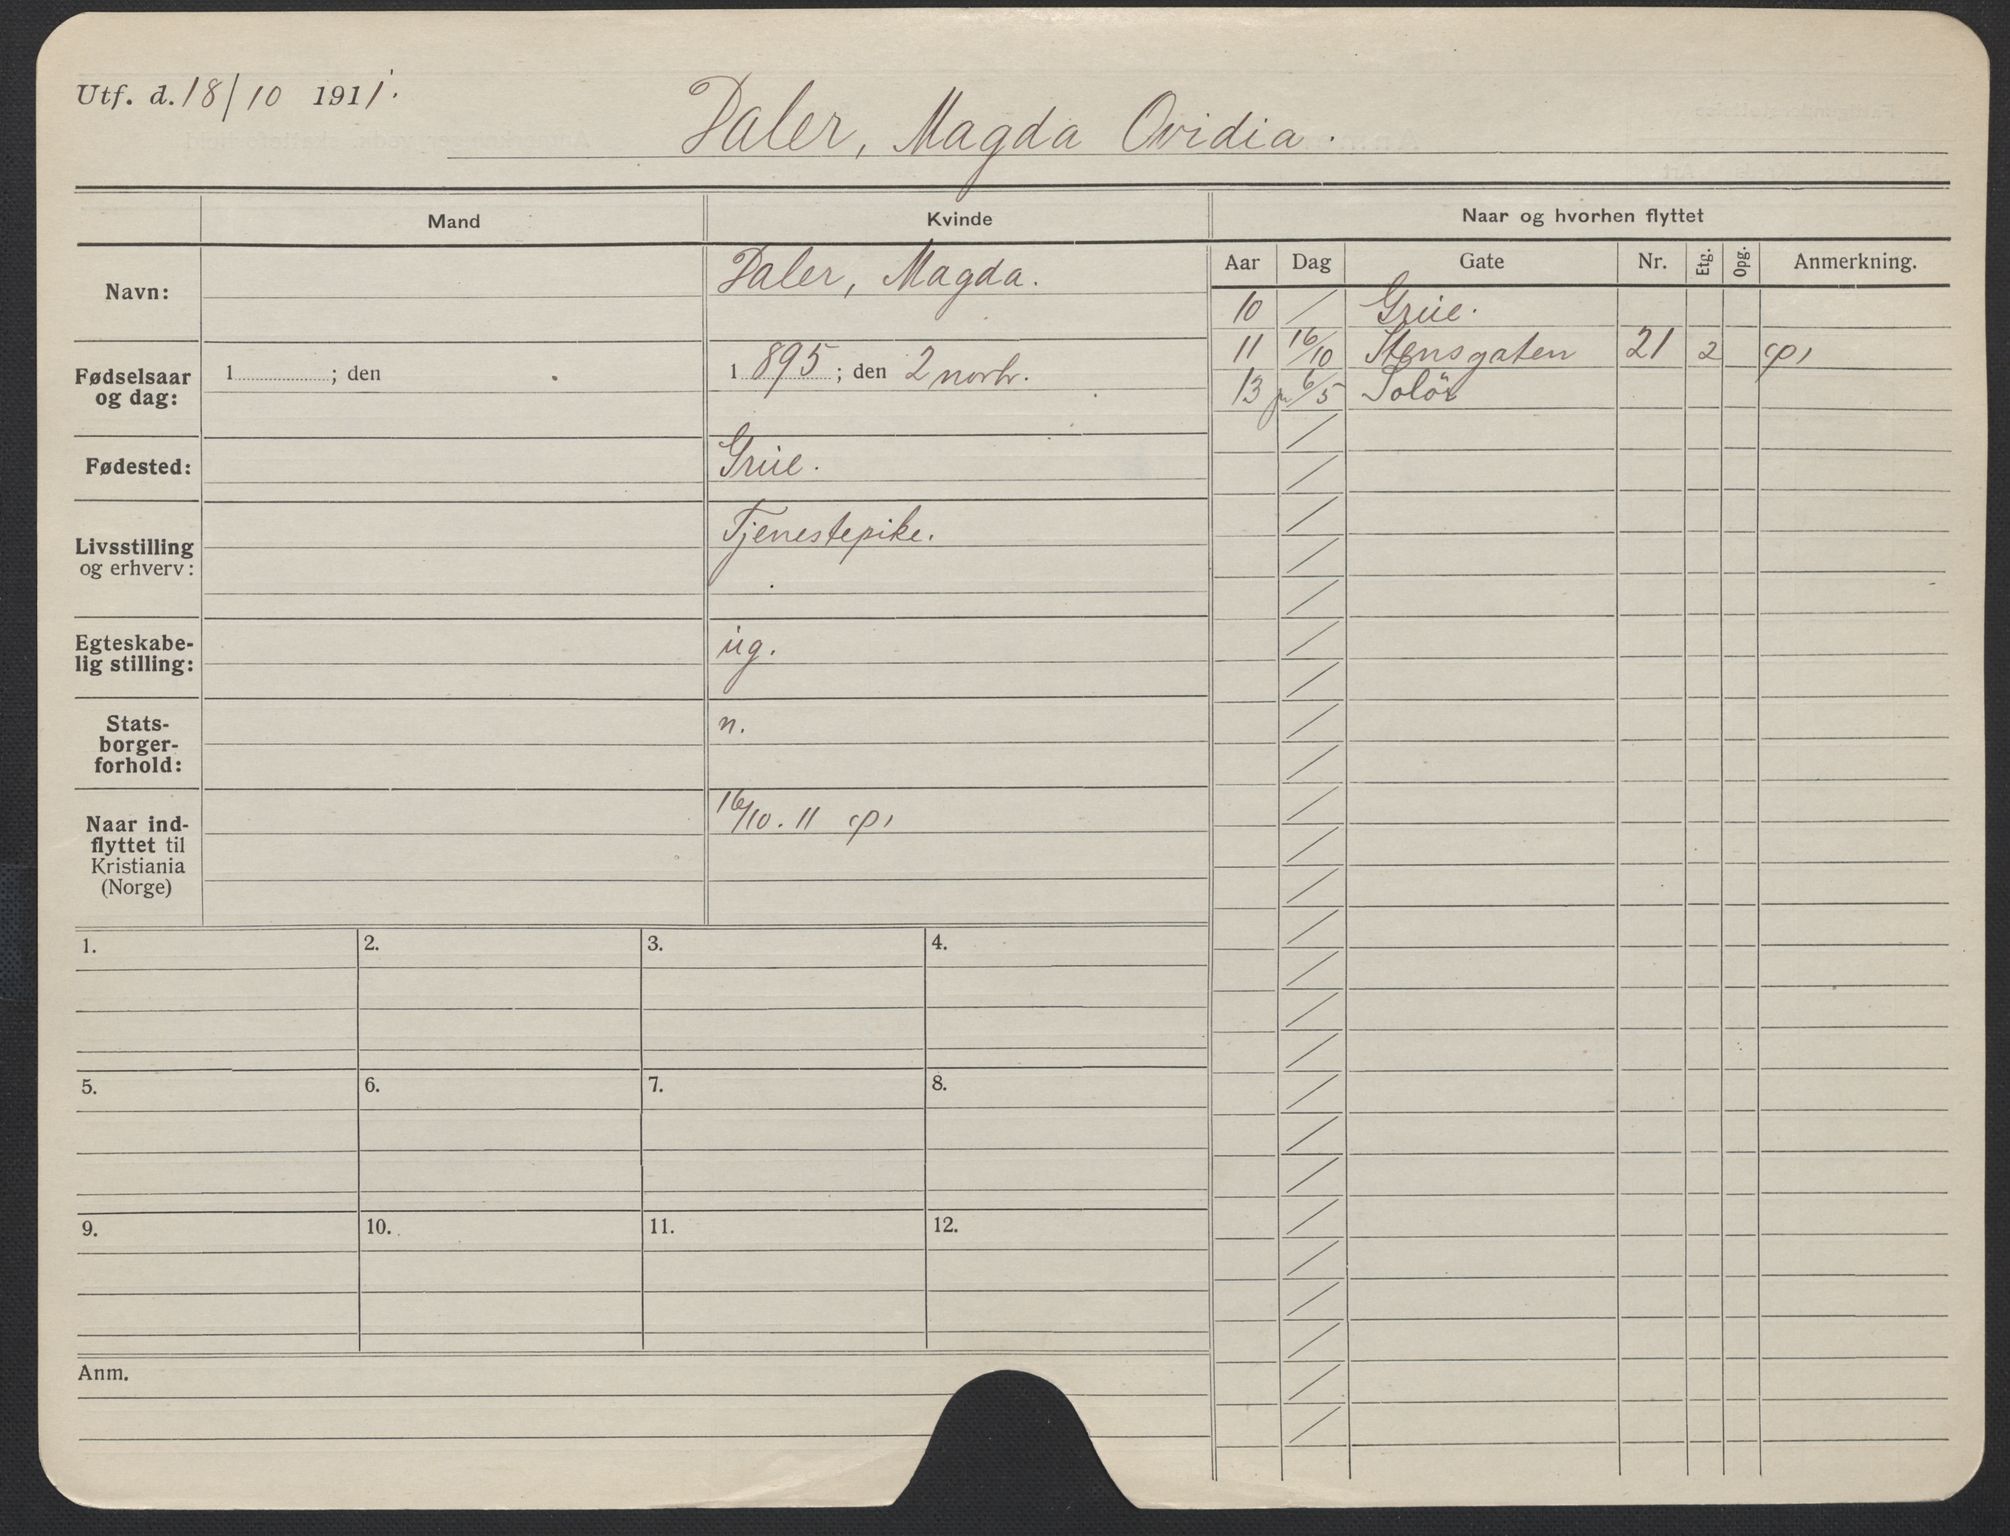 Utf. d. 18/10 1911.
Daler, Magda Ovidia.
Mand Kvinde Naar og hvorhen flyttet
Aar Dag Gate Nr. Etg. Opg. Anmerkning.
Navn: Daler, Magda.
10 / Grue.
11 16/10 Stensgaten 21 2
13 6/5 Solör
Fødselsaar og dag: 1 ; den
1895 ; den 2 novbr.
Fødested: Grue.
Livsstilling og erhverv: Tjenestepike.
Egteskabe-
lig stilling: ug.
Stats-
borger-
forhold: n.
Naar ind-
flyttet til
Kristiania
(Norge)
16/10. 11
1. 2. 3. 4.
5. 6. 7. 8.
9. 10. 11. 12.
Anm.